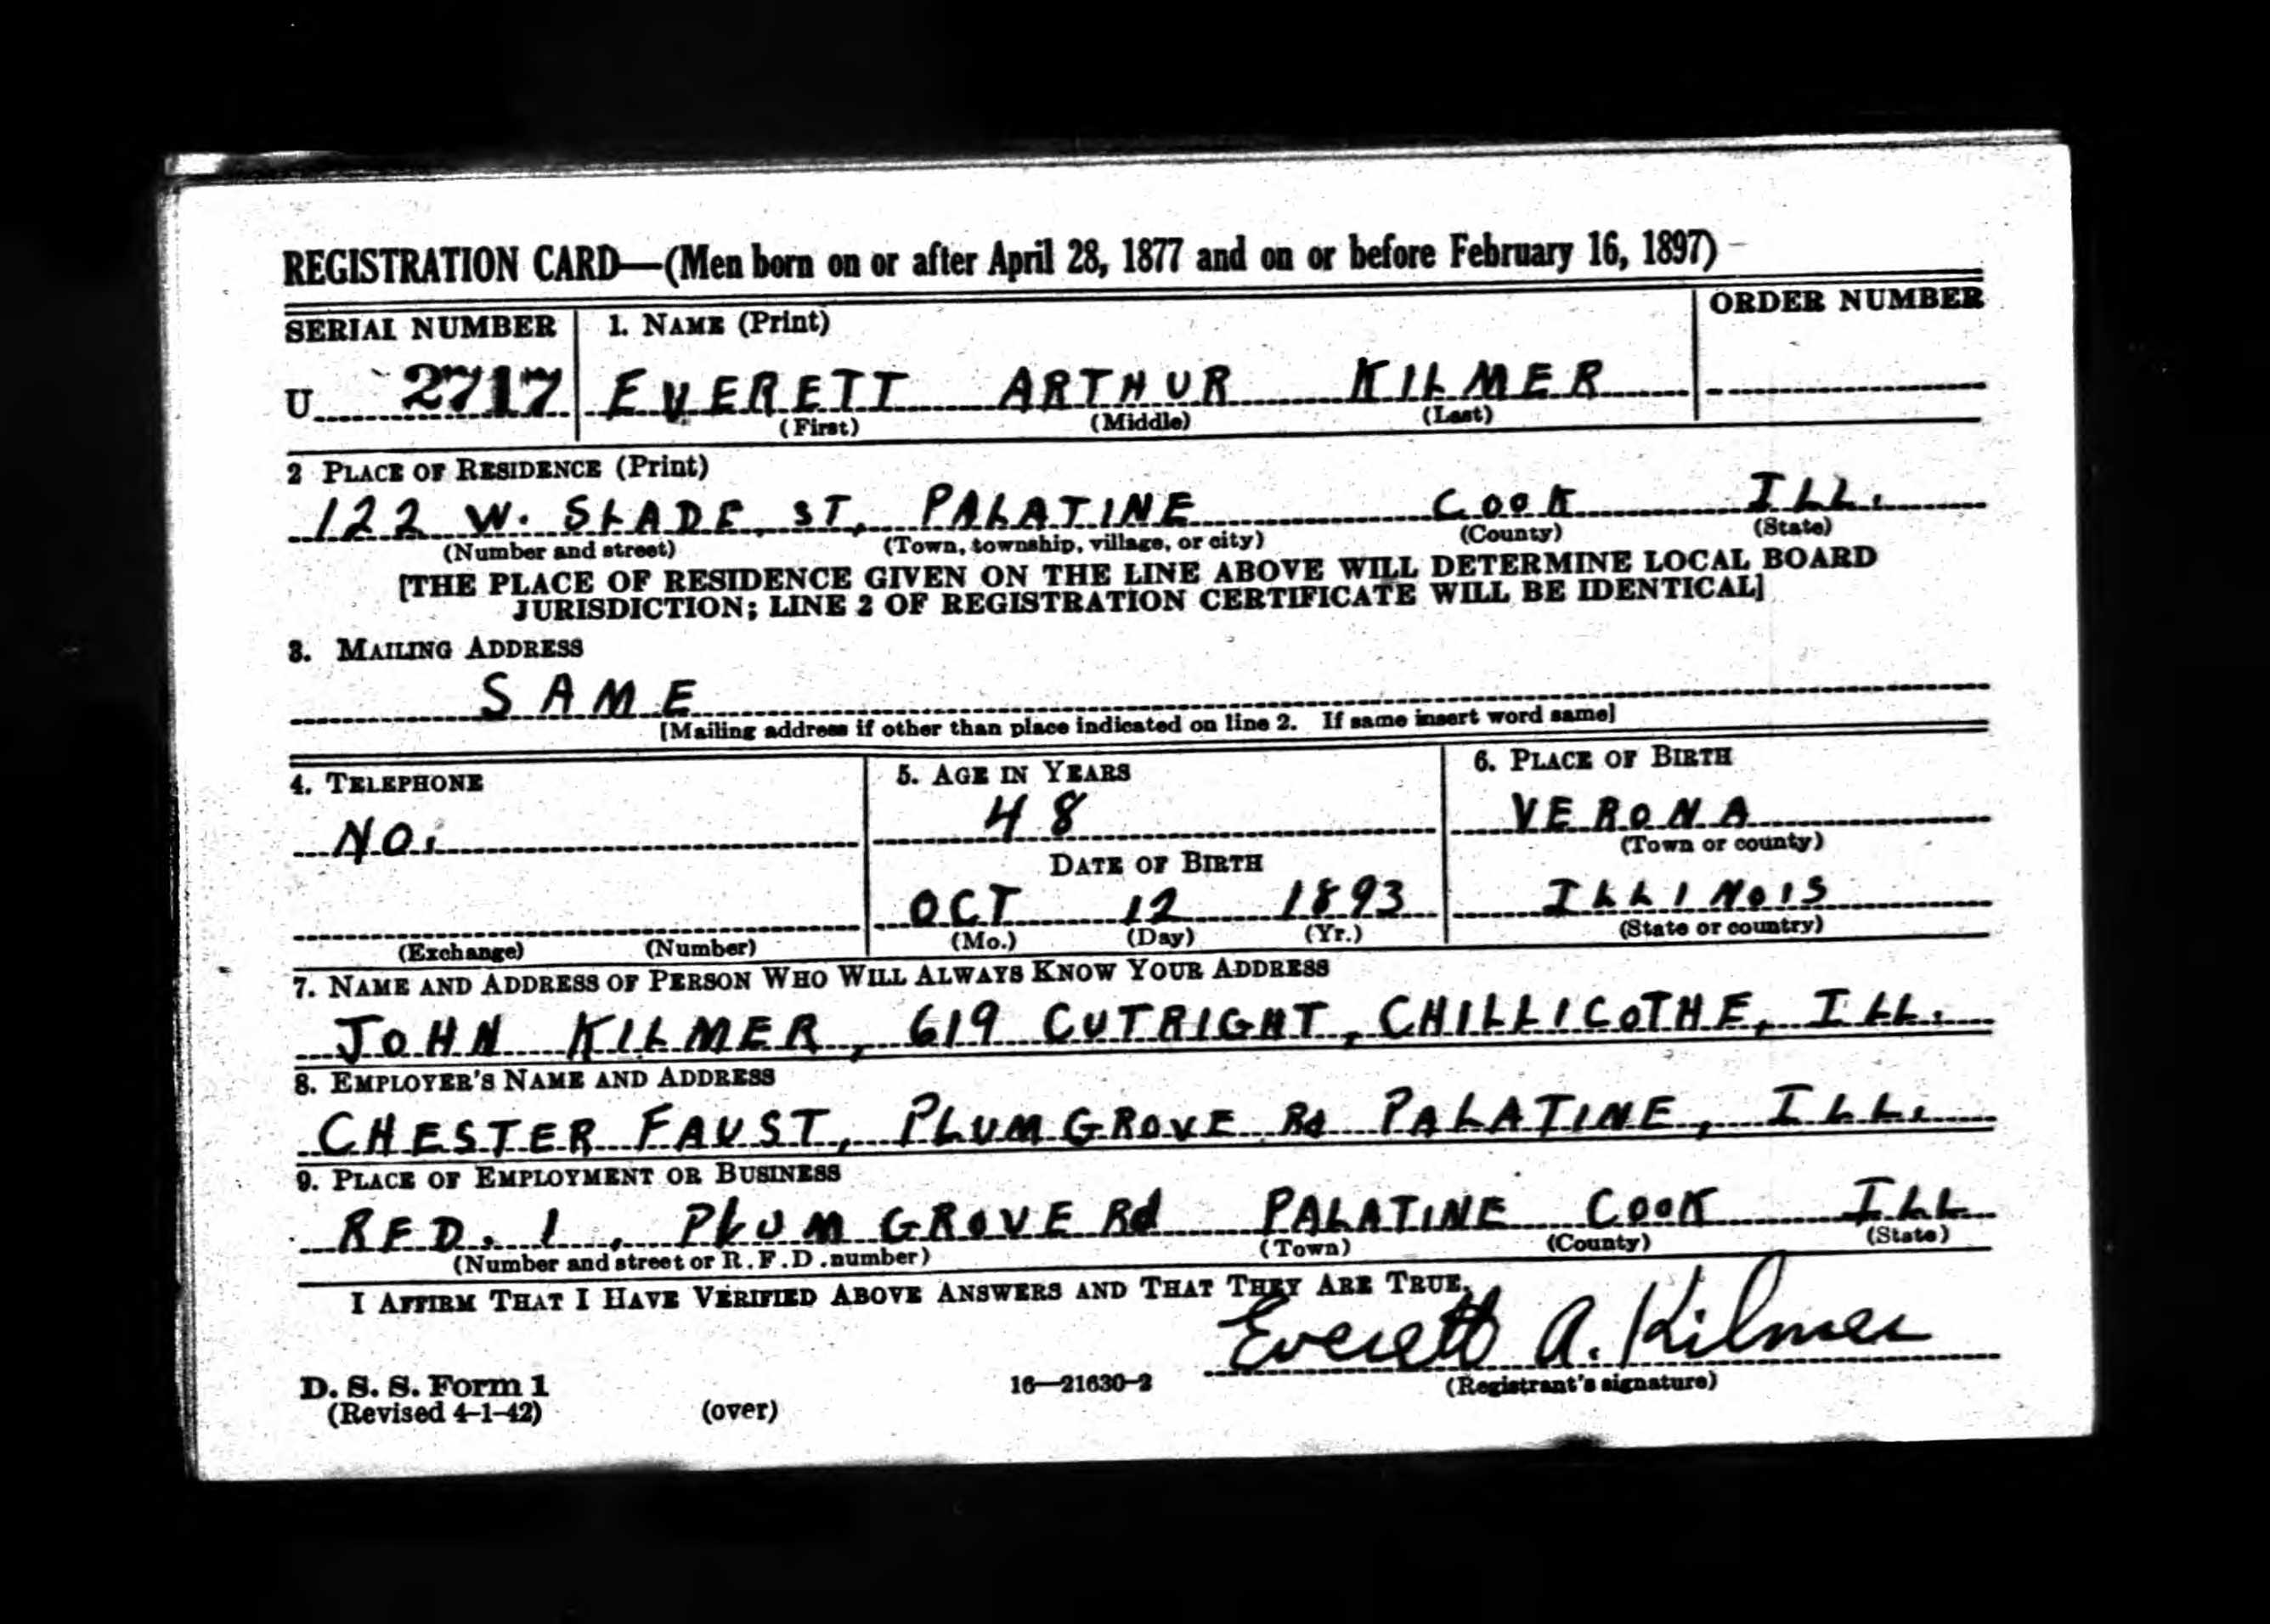 REGISTRATION CARD—(Men born on or after April 28, 1877 and on or before February 16, 1897)
SERIAL NUMBER 1. NAME (Print) ORDER NUMBER
U 2717 EVERETT ARTHUR KILMER
(First) (Middle) (Last)
2 PLACE OF RESIDENCE (Print)
122 W. SLADE ST, PALATINE COOK ILL.
(Number and street) (Town, township, village, or city) (County) (State)
[THE PLACE OF RESIDENCE GIVEN ON THE LINE ABOVE WILL DETERMINE LOCAL BOARD
JURISDICTION; LINE 2 OF REGISTRATION CERTIFICATE WILL BE IDENTICAL]
3. MAILING ADDRESS
SAME
[Mailing address if other than place indicated on line 2. If same insert word same]
4. TELEPHONE 5. AGE IN YEARS 6. PLACE OF BIRTH
NO. 48 VERONA
(Town or county)
DATE OF BIRTH
OCT 12 1893 ILLINOIS
(Exchange) (Number) (Mo.) (Day) (Yr.) (State or country)
7. NAME AND ADDRESS OF PERSON WHO WILL ALWAYS KNOW YOUR ADDRESS
JOHN KILMER, 619 CUTRIGHT, CHILLICOTHE, ILL.
8. EMPLOYER'S NAME AND ADDRESS
CHESTER FAUST, PLUM GROVE Rd PALATINE, ILL.
9. PLACE OF EMPLOYMENT OR BUSINESS
RFD. 1, PLUM GROVE Rd PALATINE COOK ILL
(Number and street or R.F.D. number) (Town) (County) (State)
I AFFIRM THAT I HAVE VERIFIED ABOVE ANSWERS AND THAT THEY ARE TRUE.
Everett A. Kilmer
D. S. S. Form 1 16—21630-2 (Registrant's signature)
(Revised 4-1-42) (over)